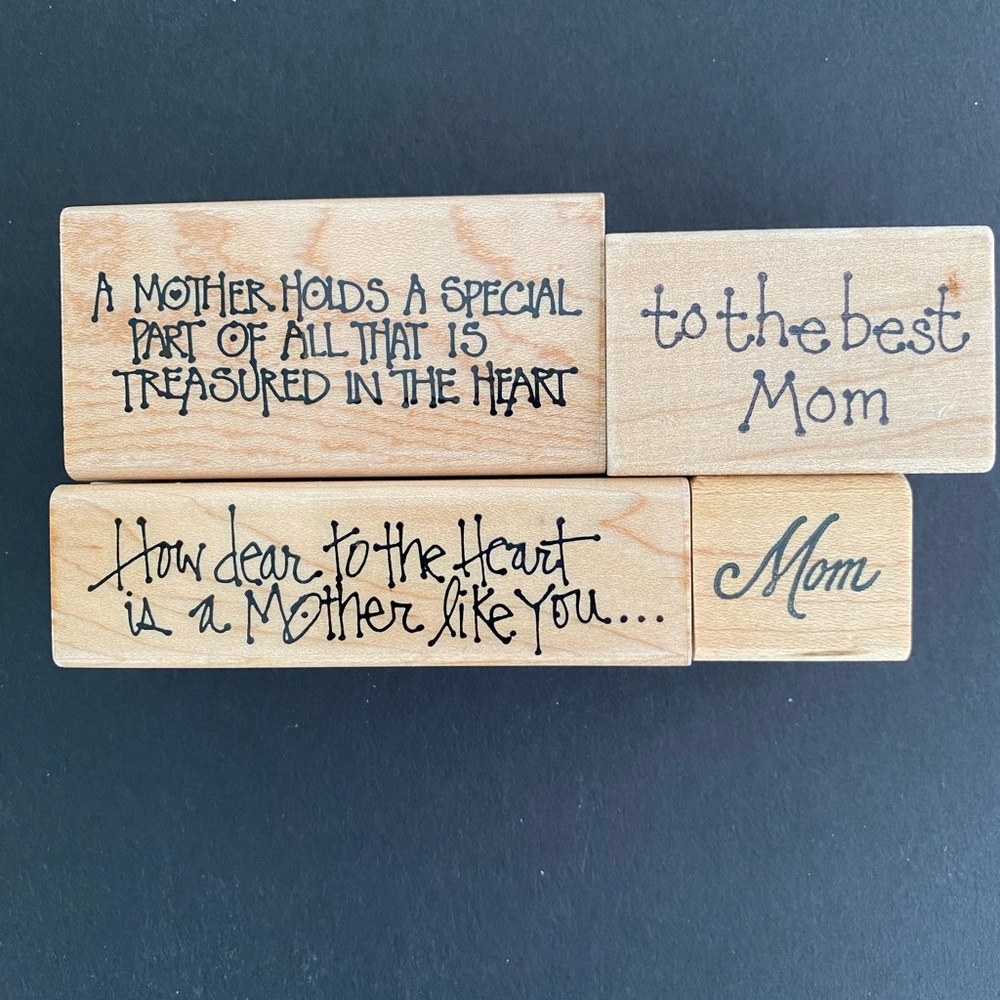 A MOTHER HOLDS A SPECIAL
PART OF ALL THAT IS
TREASURED IN THE HEART
to the best
Mom
How dear to the Heart
is a Mother like you...
Mom